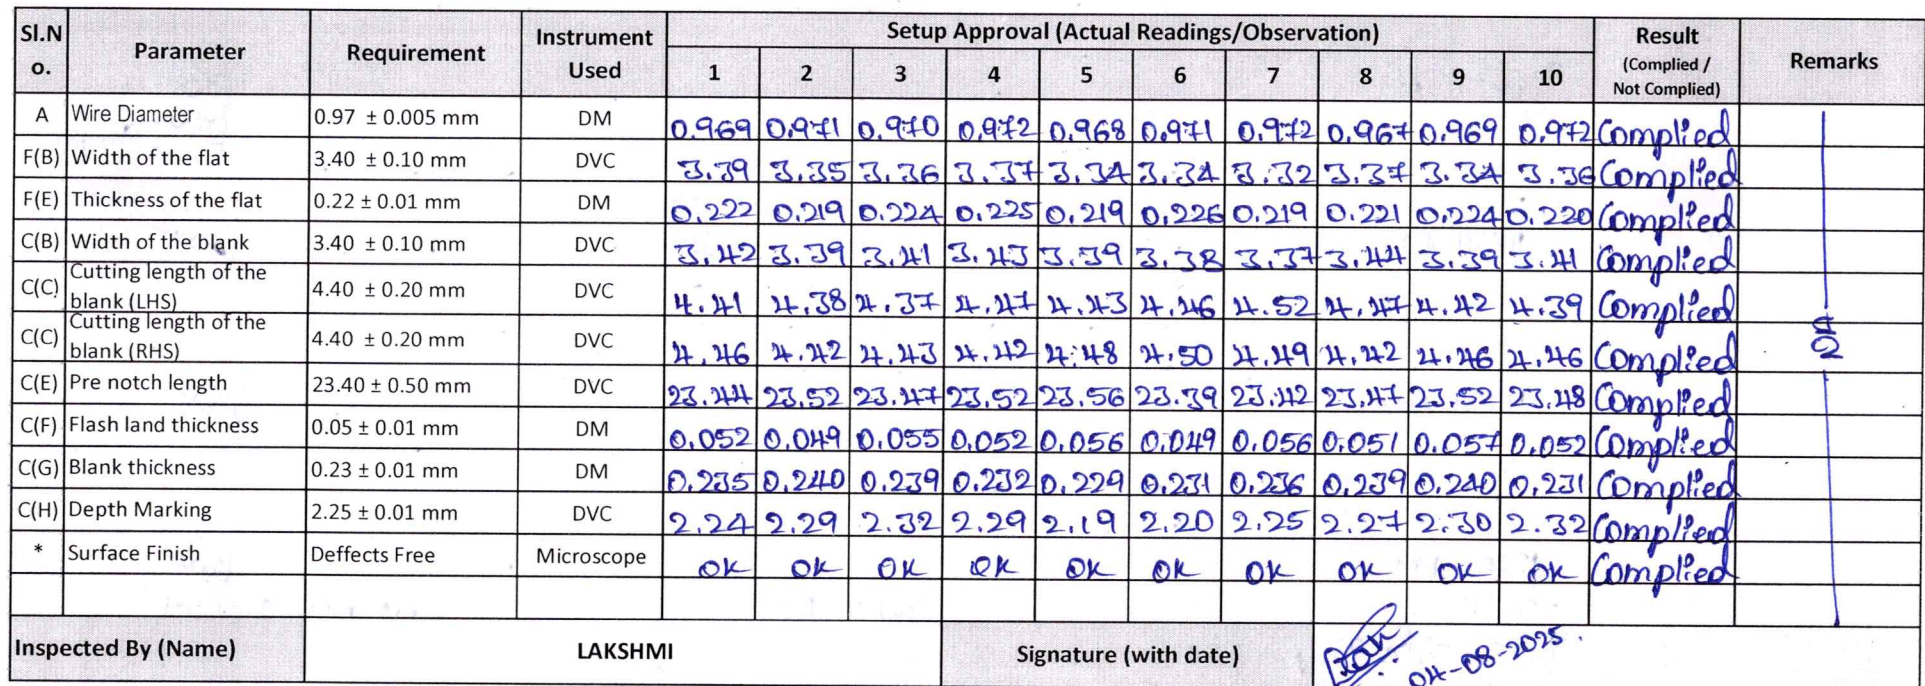 Sl.No. Parameter Requirement Instrument Used Setup Approval (Actual Readings/Observation) Result (Complied / Not Complied) Remarks
1 2 3 4 5 6 7 8 9 10
A Wire Diameter 0.97 ± 0.005 mm DM 0.969 0.971 0.970 0.972 0.968 0.971 0.972 0.967 0.969 0.972 Complied
F(B) Width of the flat 3.40 ± 0.10 mm DVC 3.39 3.35 3.36 3.37 3.34 3.34 3.32 3.37 3.34 3.36 Complied
F(E) Thickness of the flat 0.22 ± 0.01 mm DM 0.222 0.219 0.224 0.225 0.219 0.226 0.219 0.221 0.224 0.220 Complied
C(B) Width of the blank 3.40 ± 0.10 mm DVC 3.42 3.39 3.41 3.43 3.39 3.38 3.37 3.44 3.39 3.41 Complied
C(C) Cutting length of the blank (LHS) 4.40 ± 0.20 mm DVC 4.41 4.38 4.37 4.47 4.43 4.46 4.52 4.47 4.42 4.39 Complied
C(C) Cutting length of the blank (RHS) 4.40 ± 0.20 mm DVC 4.46 4.42 4.43 4.42 4.48 4.50 4.49 4.42 4.46 4.46 Complied
C(E) Pre notch length 23.40 ± 0.50 mm DVC 23.44 23.52 23.47 23.52 23.56 23.39 23.42 23.47 23.52 23.48 Complied
C(F) Flash land thickness 0.05 ± 0.01 mm DM 0.052 0.049 0.055 0.052 0.056 0.049 0.056 0.051 0.057 0.052 Complied
C(G) Blank thickness 0.23 ± 0.01 mm DM 0.235 0.240 0.239 0.232 0.229 0.231 0.236 0.239 0.240 0.231 Complied
C(H) Depth Marking 2.25 ± 0.01 mm DVC 2.24 2.29 2.32 2.29 2.19 2.20 2.25 2.27 2.30 2.32 Complied
* Surface Finish Deffects Free Microscope OK OK OK OK OK OK OK OK OK OK Complied
Inspected By (Name) LAKSHMI Signature (with date) 04-08-2025.